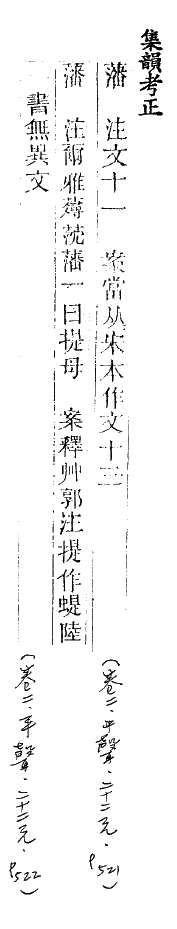 集韻考正
藩　注文十一　案當从宋本作文十三
(卷二．平聲．二十二元．P521)
藩　注爾雅薚莐藩一曰提母　案釋艸郭注提作蝭陸
書無異文
(卷二．平聲．二十二元．P522)